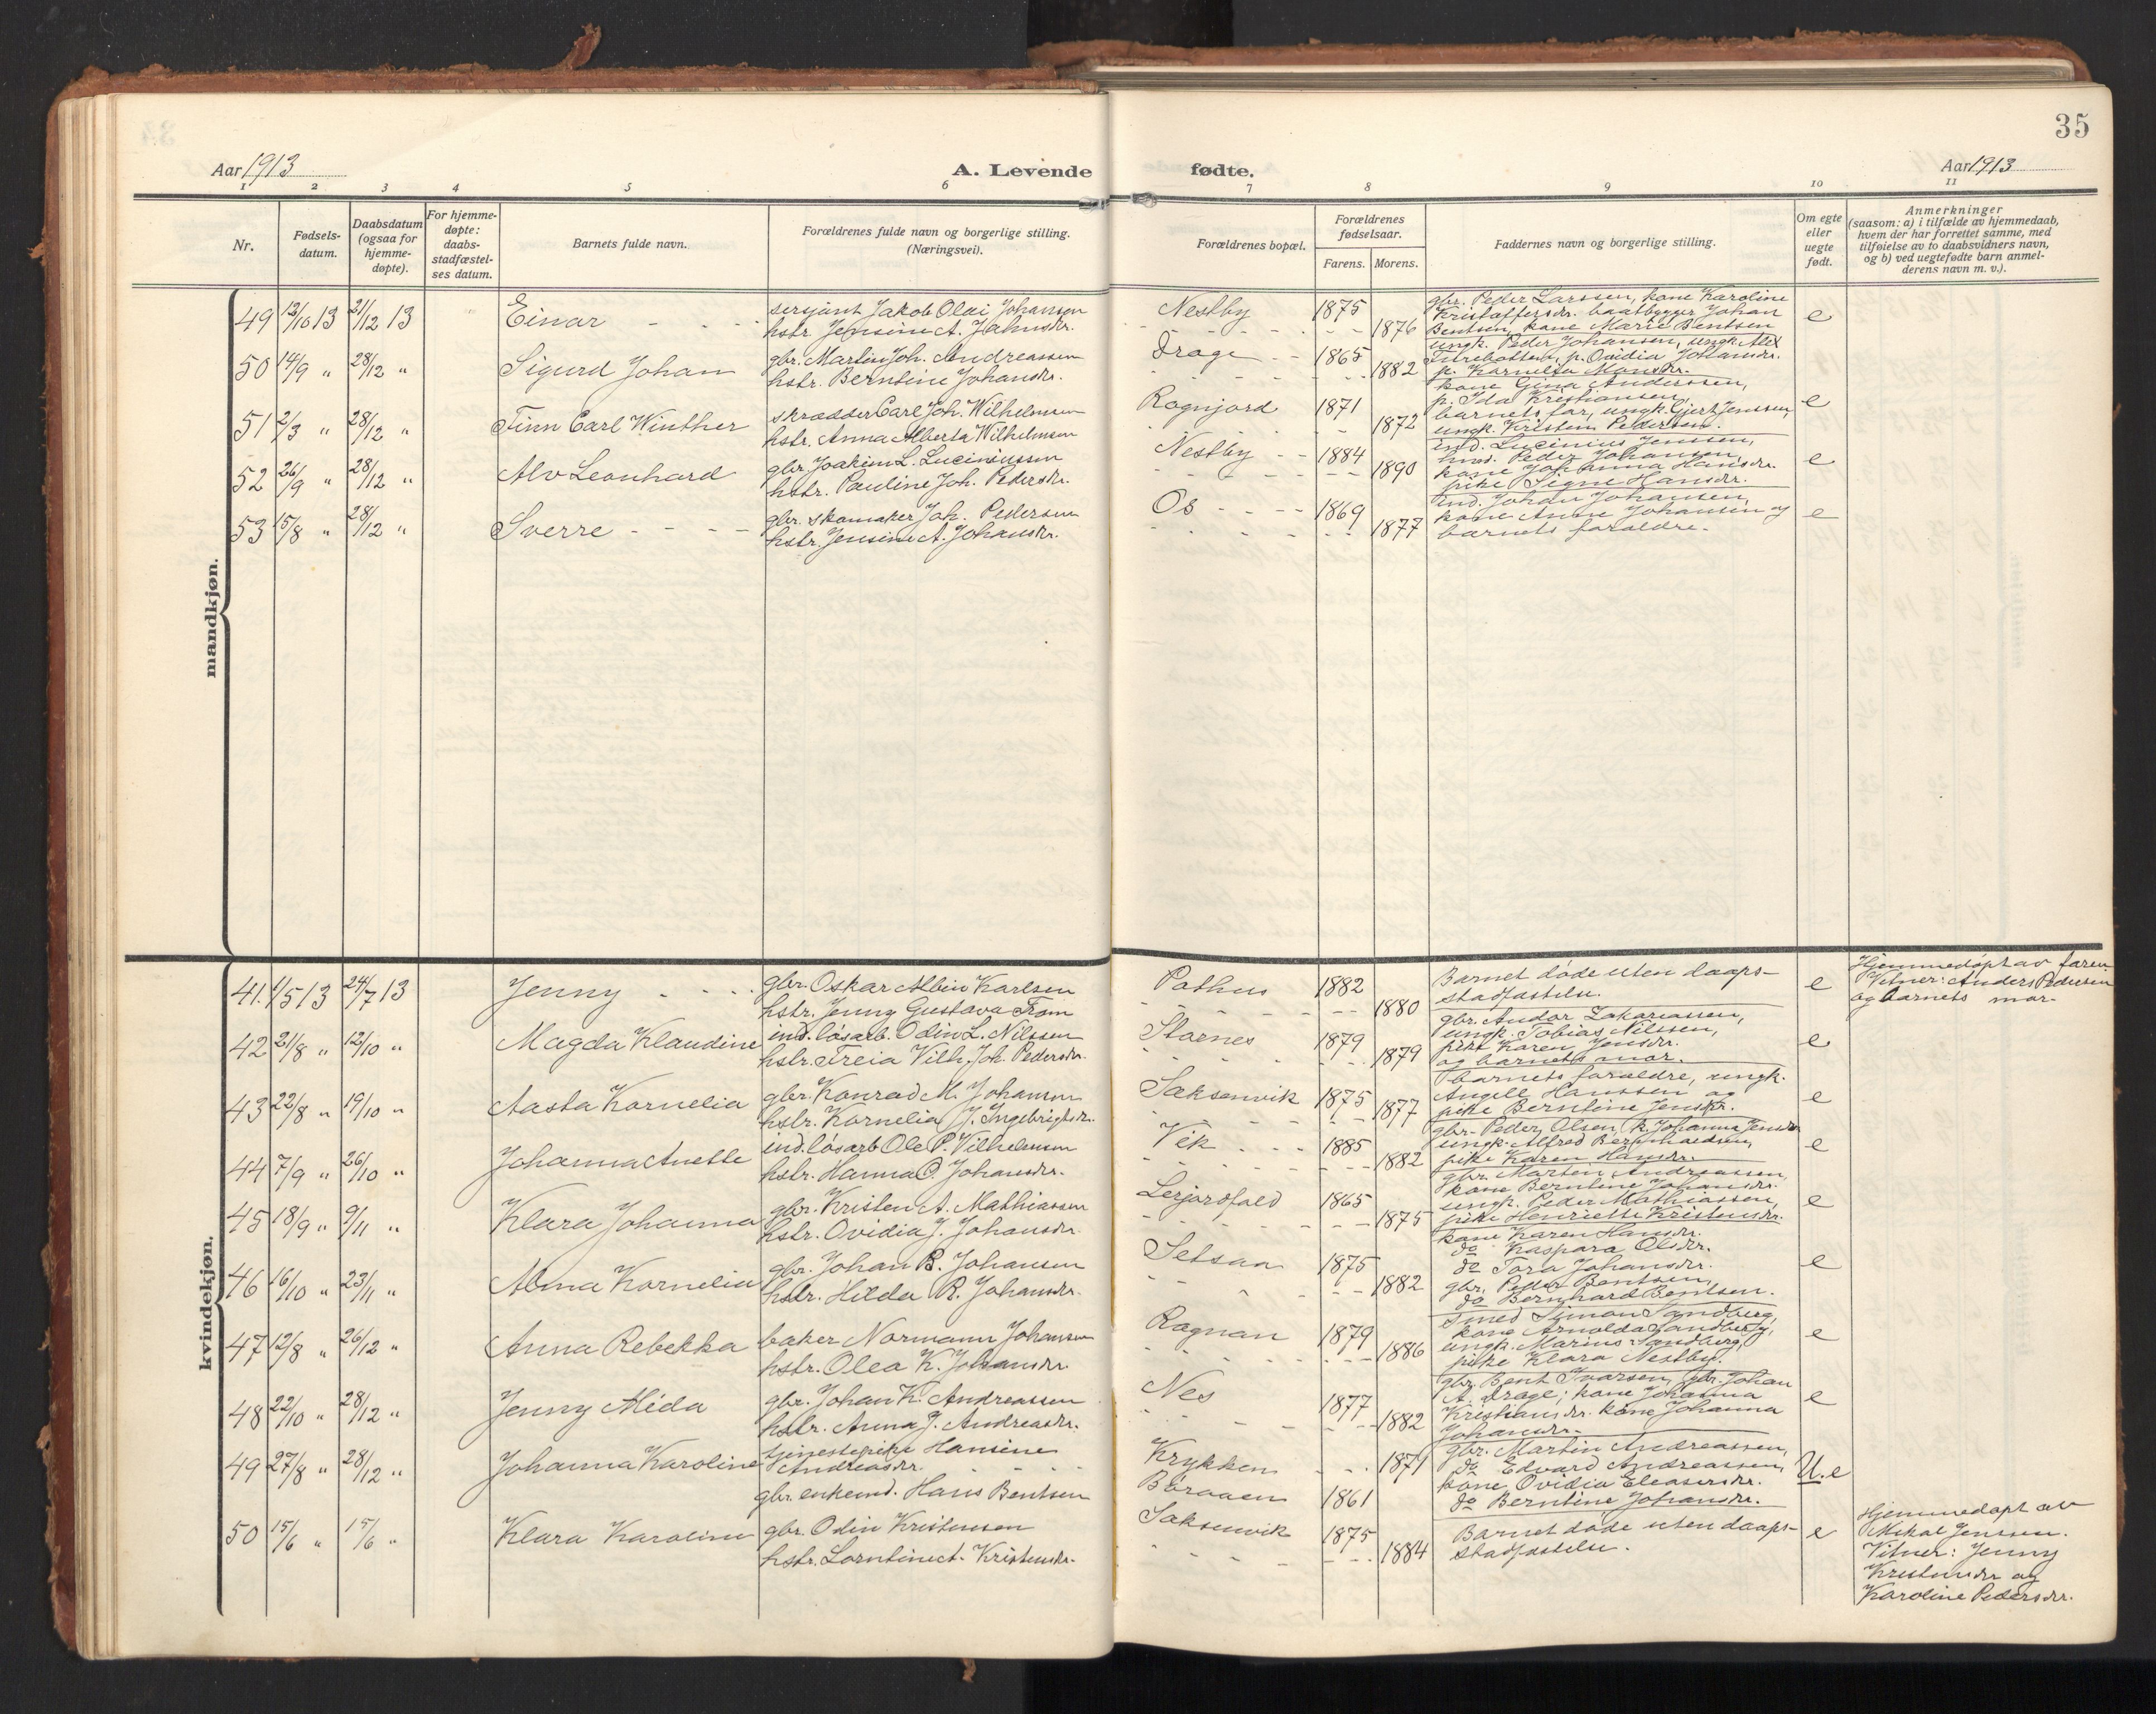 35
Aar 1913
A. Levende fødte.
Aar 1913
1 2 3 4 5 6 7 8 9 10 11
Nr.
Fødsels-
datum.
Daabsdatum
(ogsaa for
hjemme-
døpte).
For hjemme-
døpte:
daabs-
stadfæstel-
ses datum.
Barnets fulde navn.
Forældrenes fulde navn og borgerlige stilling.
(Næringsvei).
Forældrenes bopæl.
Forældrenes
fødselsaar.
Farens. Morens.
Faddernes navn og borgerlige stilling.
Om egte
eller
uegte
født.
Anmerkninger
(saasom: a) i tilfælde av hjemmedaab,
hvem der har forrettet samme, med
tilføielse av to daabsvidners navn,
og b) ved uegtefødte barn anmel-
derens navn m. v.).
mandkjøn.
49 12/10 13 21/12 13 Einar
sersjant Jakob Olai Johansen
hstr. Jensine A. Jahnsdr.
Nestby 1875 1876
gbr. Peder Larssen, kone Karoline
Kristoffersdr. baatbygger Johan
Bentsen, kone Marie Bentsen
e
50 14/9 " 28/12 " Sigurd Johan
gbr. Martin Joh. Andreassen
hstr. Berntine Johansdr.
Drage 1865 1882
ungk. Peder Johansen, ungk. Alex
p. Ovidia Johansdr.
p. Kornelia Monsdr.
51 2/3 " 28/12 " Finn Carl Winther
skrædder Carl Joh. Wilhelmsen
hstr. Anna Alberta Wilhelmsen
Rognjord 1871 1872
kone Gina Anderssen,
p. Ida Kristiansen,
barnets far, ungk. Gjert Jenssen,
ungk. Kristen Pedersen.
e
52 26/9 " 28/12 " Alv Leonhard
gbr. Joakim L. Luciniussen
hstr. Pauline Joh. Pedersdr.
Nestby 1884 1890
ind. Lucinius Jenssen,
Peder Johansen,
kone Johanna Hansdr.
pike Signe Hansdr.
e
53 15/8 " 28/12 " Sverre
gbr. skomaker Joh. Pedersen
hstr. Jensine A. Johansdr.
Os 1869 1877
ind. Johan Johansen,
kone Anne Johansen og
barnets forældre.
e
kvindekjøn.
41. 1/5 13 24/7 13 Jenny
gbr. Oskar Albin Karlsen
hstr. Jenny Gustava From
Pothus 1882 1880
Barnet døde uten daaps-
stadfæstelse.
e
Hjemmedøpt av faren
Vitner: Anders Pedersen
og barnets mor.
42 21/8 " 12/10 " Magda Klaudine
ind. løsarb. Odin L. Nilssen
hstr. Freia Vilh. Joh. Pedersdr.
Starnes 1879 1879
gbr. Andor Zakariassen,
ungk. Tobias Nilssen,
pike Karen Jensdr.
og barnets mor.
e
43 22/8 " 19/10 " Aasta Kornelia
gbr. Konrad M. Johansen
hstr. Kornelia J. Ingebrigtsdr.
Saksenvik 1875 1877
barnets forældre, ungk.
Angell Hanssen og
pike Berntine Jensdr.
e
44 7/9 " 26/10 " Johanna Anette
ind. løsarb Ole P. Vilhelmsen
hstr. Hanna O. Johansdr.
Vik 1885 1882
gbr. Peder Olsen, k. Johanna Jensdr.
ungk. Alfred Bernhardsen,
pike Karen Hansdr.
e
45 18/9 " 9/11 " Klara Johanna
gbr. Kristen A. Mathiassen
hstr. Ovidia J. Johansdr.
Lerjordfald 1865 1875
gbr. Martin Andreassen,
kone Berntine Johansdr.
ungk. Peder Mathiassen,
pike Henriette Kristensdr.
e
46 16/10 " 23/11 " Alma Kornelia
gbr. Johan B. Johansen
hstr. Hilda R. Johansdr.
Setsaa 1875 1882
kone Karen Hansdr.
do Kaspara Olsdr.
do Tora Johansdr.
gbr. Peder Bentsen,
do Bernhard Bentsen.
e
47 12/8 " 26/12 " Anna Rebekka
baker Normann Johansen
hstr. Olea K. Johansdr.
Rognan 1879 1886
Smed Simon Sandberg,
kone Arnolda Sandberg,
ungk. Marius Sandberg,
pike Klara Nestby.
e
48 22/10 " 28/12 " Jenny Alida
gbr. Johan K. Andreassen
hstr. Anna J. Andreasdr.
Nes 1877 1882
gbr. Bent Ivarsen, gbr. Johan
A. Drage, kone Johanna
Kristiansdr. kone Johanna
Johansdr.
e
49 27/8 " 28/12 " Johanna Karoline
tjenestepike Hansine
Andreasdr.
gbr. enkemd. Hans Bentsen
Krykken 1871
Børaaen 1861
gbr. Martin Andreassen,
do Edvard Andreassen,
kone Ovidia Eleasersdr.
do Berntine Johansdr.
U.e
50 15/6 " 15/6 " Klara Karoline
gbr. Odin Kristensen
hstr. Lorntine A. Kristensdr.
Saksenvik 1875 1884
Barnet døde uten daaps-
stadfæstelse.
e
Hjemmedøpt av
Mikal Jenssen.
Vitner: Jenny
Kristensdr og
Karoline Pedersdr.